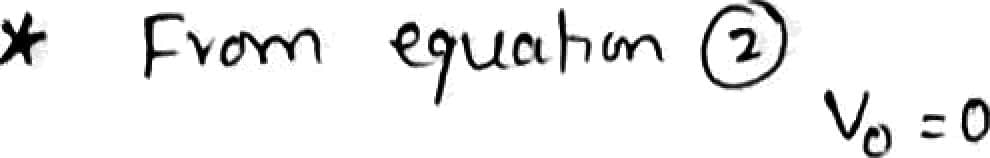 * From equation ②
V₀ = 0